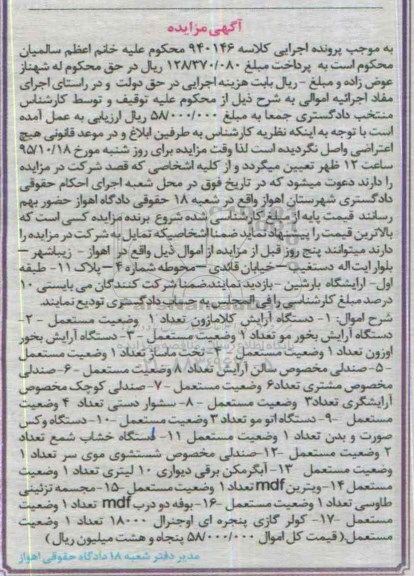 آگهی مزایده
به موجب پرونده اجرایی کلاسه ۹۴۰۱۴۶ محکوم علیه خانم اعظم سالمیان
محکوم است به پرداخت مبلغ ۱۲۸/۳۷۰/۰۸۰ ریال در حق محکوم له شهناز
عوض زاده و مبلغ - ریال بابت هزینه اجرایی در حق دولت و در راستای اجرای
مفاد اجرائیه اموالی به شرح ذیل از محکوم علیه توقیف و توسط کارشناس
منتخب دادگستری جمعا به مبلغ ۵۸/۰۰۰/۰۰۰ ریال ارزیابی به عمل آمده
است با توجه به اینکه نظریه کارشناس به طرفین ابلاغ و در موعد قانونی هیچ
اعتراضی واصل نگردیده است لذا وقت مزایده برای روز شنبه مورخ ۹۵/۱۰/۱۸
ساعت ۱۲ ظهر تعیین میگردد و از کلیه اشخاصی که قصد شرکت در مزایده
را دارند دعوت میشود که در تاریخ فوق در محل شعبه اجرای احکام حقوقی
دادگستری شهرستان اهواز واقع در شعبه ۱۸ حقوقی دادگاه اهواز حضور بهم
رسانند قیمت پایه از مبلغ کارشناسی شده شروع برنده مزایده کسی است که
بالاترین قیمت را پیشنهاد نماید ضمنا اشخاصیکه تمایل به شرکت در مزایده را
دارند میتوانند پنج روز قبل از مزایده از اموال ذیل واقع در اهواز - زیباشهر -
بلوار آیت اله دستغیب - خیابان قائدی - محوطه شماره ۴ - پلاک ۱۱- طبقه
اول- آرایشگاه بازدید نمایند ضمنا شرکت کنندگان می بایستی ۱۰
درصد مبلغ کارشناسی را فی المجلس به حساب دادگستری تودیع نمایند.
شرح اموال: ۱- دستگاه آرایش کلامازون تعداد ۱ وضعیت مستعمل ۲-
دستگاه آرایش بخور مو تعداد ۱ وضعیت مستعمل ۳- دستگاه آرایش بخور
اوزون تعداد ۱ وضعیت مستعمل ۴- تخت ماساژ تعداد ۱ وضعیت مستعمل
۵- صندلی مخصوص سالن آرایش تعداد ۸ وضعیت مستعمل ۶- صندلی
مخصوص مشتری تعداد ۶ وضعیت مستعمل ۷- صندلی کوچک مخصوص
آرایشگری تعداد ۳ وضعیت مستعمل ۸- سشوار دستی تعداد ۴ وضعیت
مستعمل ۹- دستگاه اتو مو تعداد ۳ وضعیت مستعمل ۱۰- دستگاه وکس
صورت و بدن تعداد ۱ وضعیت مستعمل ۱۱- دستگاه خشاب شمع تعداد
۲ وضعیت مستعمل ۱۲- صندلی مخصوص شستشوی موی سر تعداد ۱
وضعیت مستعمل ۱۳- آبگرمکن برقی دیواری ۱۰ لیتری تعداد ۱ وضعیت
مستعمل ۱۴- ویترین mdf تعداد ۱ وضعیت مستعمل ۱۵- مجسمه تزئینی
طاوسی تعداد ۱ وضعیت مستعمل ۱۶- بوفه دو درب mdf تعداد ۱ وضعیت
مستعمل ۱۷- کولر گازی پنجره ای اوجنرال ۱۸۰۰۰ تعداد ۱ وضعیت
مستعمل( قیمت کل اموال ۵۸/۰۰۰/۰۰۰ پنجاه و هشت میلیون ریال )
مدیر دفتر شعبه ۱۸ دادگاه حقوقی اهواز